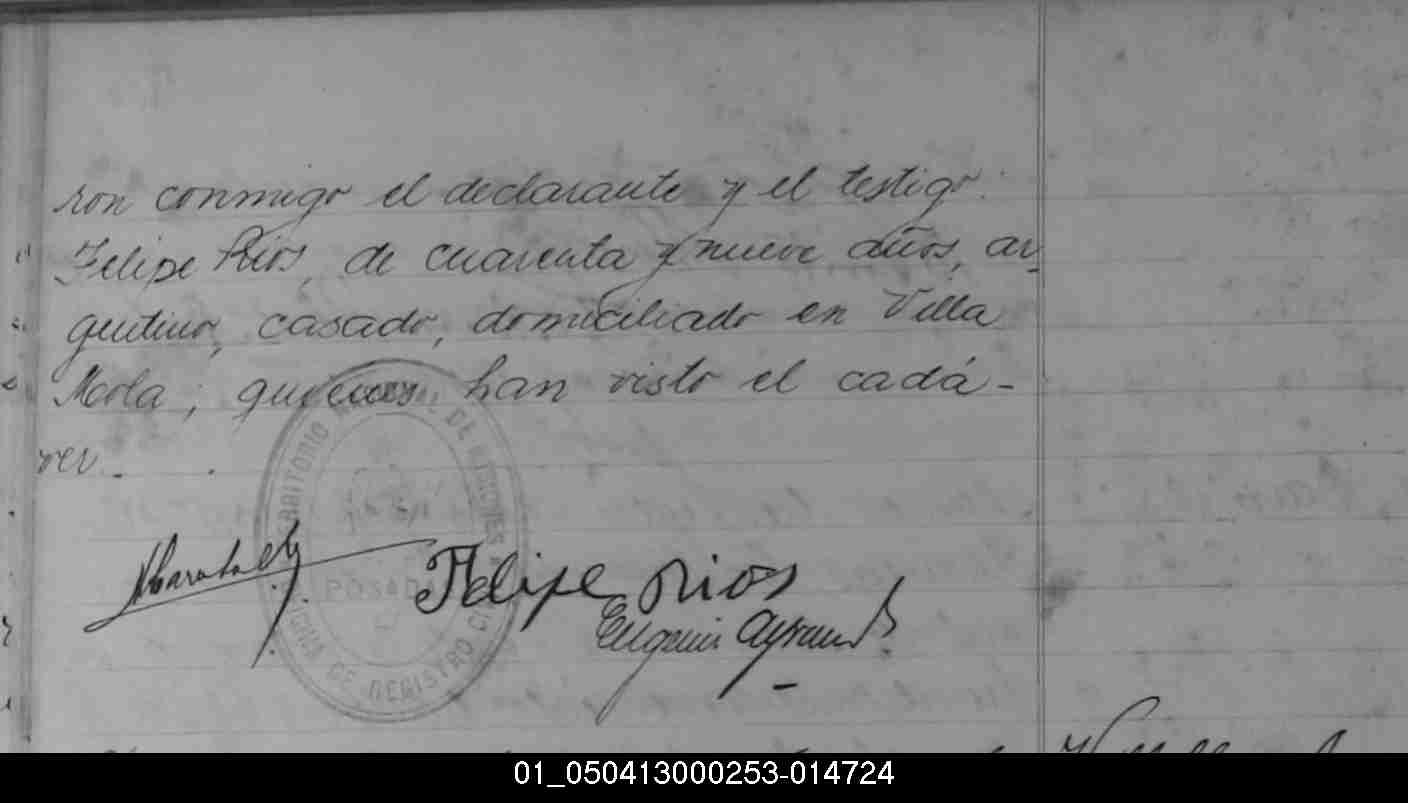 ron conmigo el declarante y el testigo:
Felipe Rios, de cuarenta y nueve años, ar-
gentino, casado, domiciliado en Villa
Mola; quienes han visto el cadá-
ver.
TERRITORIO NACIONAL DE MISIONES
POSADAS
OFICINA DE REGISTRO CIVIL
Felipe Rios
01_050413000253-014724